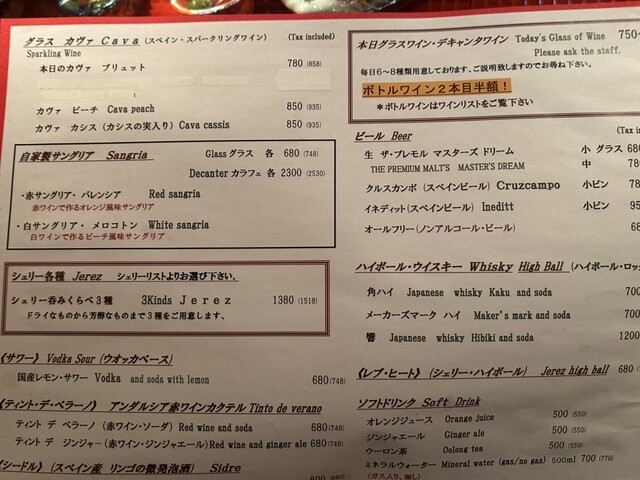 グラス カヴァ Cava (スペイン・スパークリングワイン) (Tax included)
Sparkling Wine
本日のカヴァ ブリュット 780 (858)
カヴァ ピーチ Cava peach 850 (935)
カヴァ カシス (カシスの実入り) Cava cassis 850 (935)
自家製サングリア Sangria Glass グラス 各 680 (748)
Decanter カラフェ 各 2300 (2530)
・赤サングリア・バレンシア Red sangria
赤ワインで作るオレンジ風味サングリア
・白サングリア・メロコトン White sangria
白ワインで作るピーチ風味サングリア
シェリー各種 Jerez シェリーリストよりお選び下さい.
シェリー呑みくらべ3種 3Kinds Jerez 1380 (1518)
ドライなものから芳醇なものまで3種をご用意します、
《サワー》 Vodka Sour (ウオッカベース)
国産レモン・サワー Vodka and soda with lemon 680 (748)
《ティント・デ・ベラーノ》 アンダルシア赤ワインカクテル Tinto de verano
ティント デ ベラーノ (赤ワイン・ソーダ) Red wine and soda 680 (748)
ティント デ ジンジャー (赤ワイン・ジンジャエール) Red wine and ginger ale 680 (748)
《シードル》 (スペイン産 リンゴの微発泡酒) Sidre
本日グラスワイン・デキャンタワイン Today's Glass of Wine 750~
Please ask the staff.
毎日6~8種類用意しております、ご説明致しますのでお尋ね下さい.
ボトルワイン2本目半額!
*ボトルワインはワインリストをご覧下さい
ビール Beer (Tax in
生 ザ・プレモル マスターズ ドリーム 小 グラス 680
THE PREMIUM MALT'S MASTER'S DREAM 中 780
クルスカンポ (スペインビール) Cruzcampo 小ビン 780
イネディット (スペインビール) Ineditt 小ビン 95
オールフリー (ノンアルコール・ビール) 68
ハイボール・ウイスキー Whisky High Ball (ハイボール・ロッ
角ハイ Japanese whisky Kaku and soda 700
メーカーズマーク ハイ Maker's mark and soda 700
響 Japanese whisky Hibiki and soda 1200
《レブ・ヒート》 (シェリー・ハイボール) Jerez high ball 680
ソフトドリンク Soft Drink
オレンジジュース Orange juice 500 (550)
ジンジャエール Ginger ale 500 (550)
ウーロン茶 Oolong tea 500 (550)
ミネラルウォーター Mineral water (gas/no gas) 500ml 700 (770)
(ガス入り、無し)